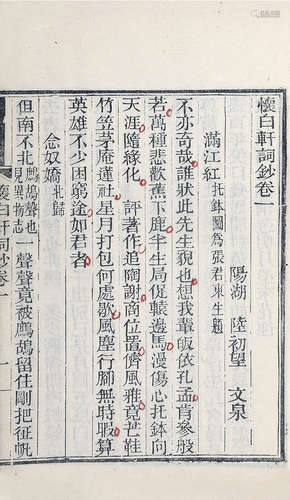 懷白軒詞鈔卷一
陽湖 陸初望 文泉
滿江紅 托鉢圖爲張君東生題
不亦奇哉誰狀此先生貌也想我輩皈依孔孟肯參般
若萬種悲歡蕉下鹿半生局促轅邊馬漫傷心托鉢向
天涯隨緣化 評著作追陶謝商位置儕風雅竟芒鞋
竹笠茅庵蓮社星月打包何處歇風塵行腳無時暇算
英雄不少困窮途如君者
念奴嬌 北歸
但南不北鷓鴣聲也見異物志一聲聲竟被鷓鴣留住剛把征帆
懷白軒詞鈔卷一
一